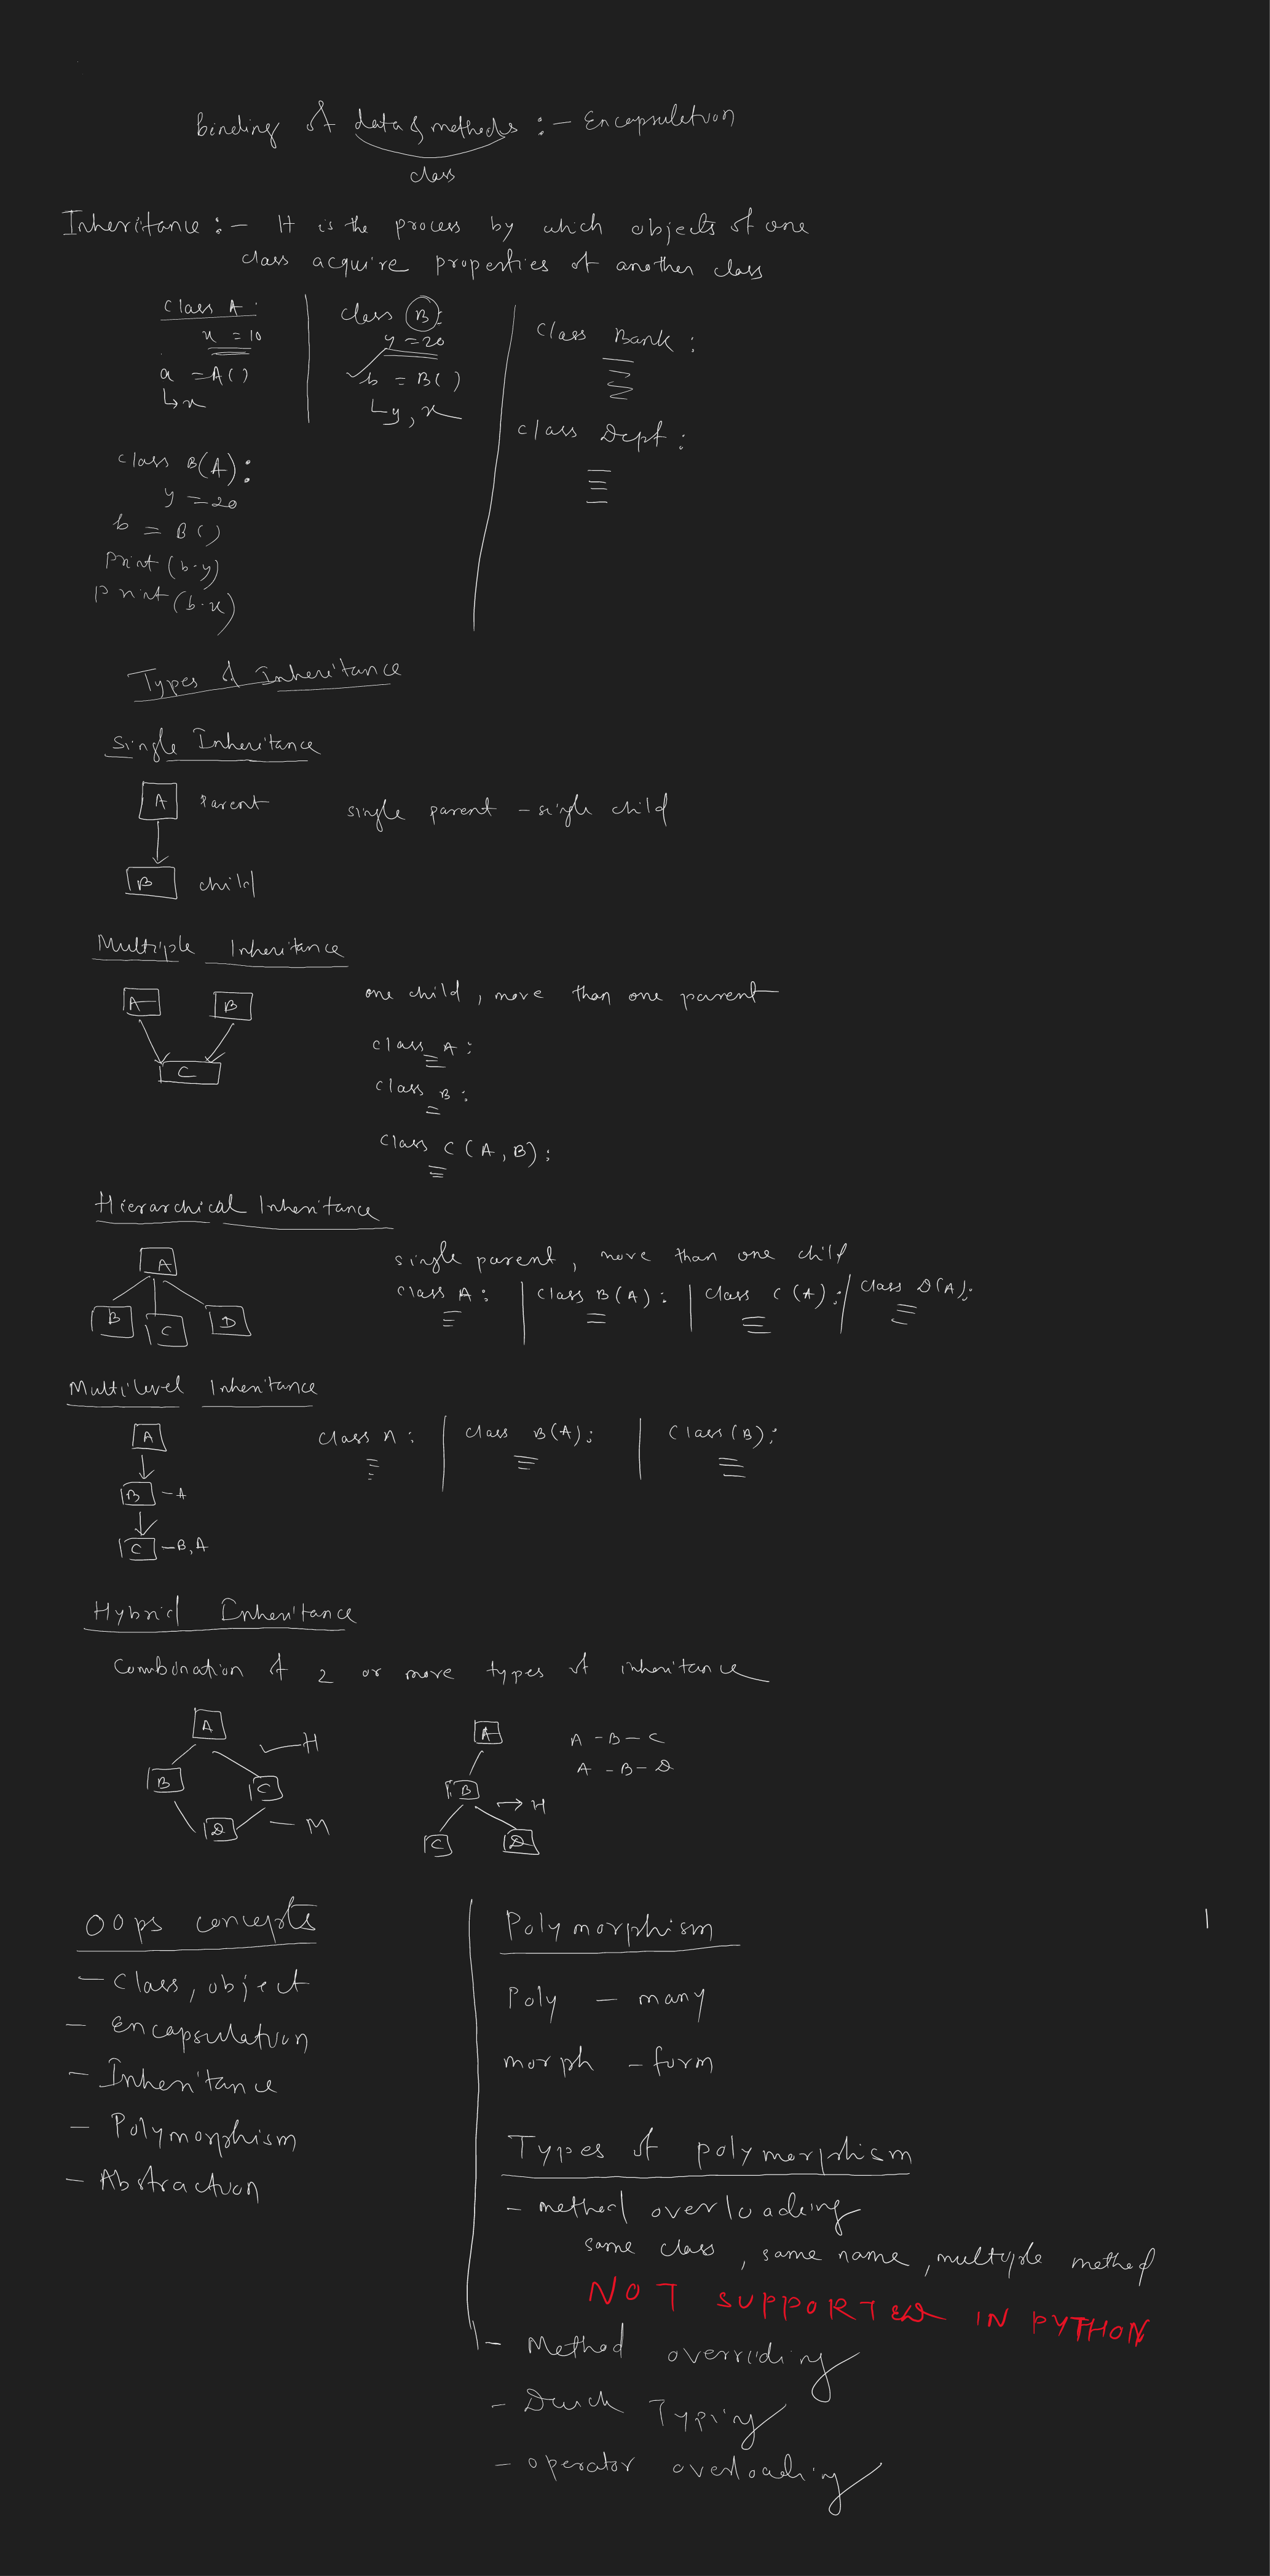 binding of data & methods :- Encapsulation
class
Inheritance :- It is the process by which objects of one
class acquire properties of another class
class A:
x = 10
a = A()
↳ x
class B:
y = 20
b = B()
↳ y, x
class Bank:
class Dept:
class B(A):
y = 20
b = B()
print(b.y)
print(b.x)
Types of Inheritance
Single Inheritance
A Parent
single parent - single child
B child
Multiple Inheritance
A B
C
one child, more than one parent
class A:
class B:
class C(A, B):
Hierarchical Inheritance
A
B C D
single parent, more than one child
class A: | class B(A): | class C(A): | class D(A):
Multilevel Inheritance
A
B - A
C - B, A
class A: | class B(A): | Class(B):
Hybrid Inheritance
Combination of 2 or more types of inheritance
A
B C - H
D - M
A
B → H
C D
A - B - C
A - B - D
OOps concepts
- Class, object
- Encapsulation
- Inheritance
- Polymorphism
- Abstraction
Polymorphism
Poly - many
morph - form
Types of polymorphism
- method overloading
same class, same name, multiple method
NOT SUPPORTED IN PYTHON
- Method overriding
- Duck Typing
- operator overloading